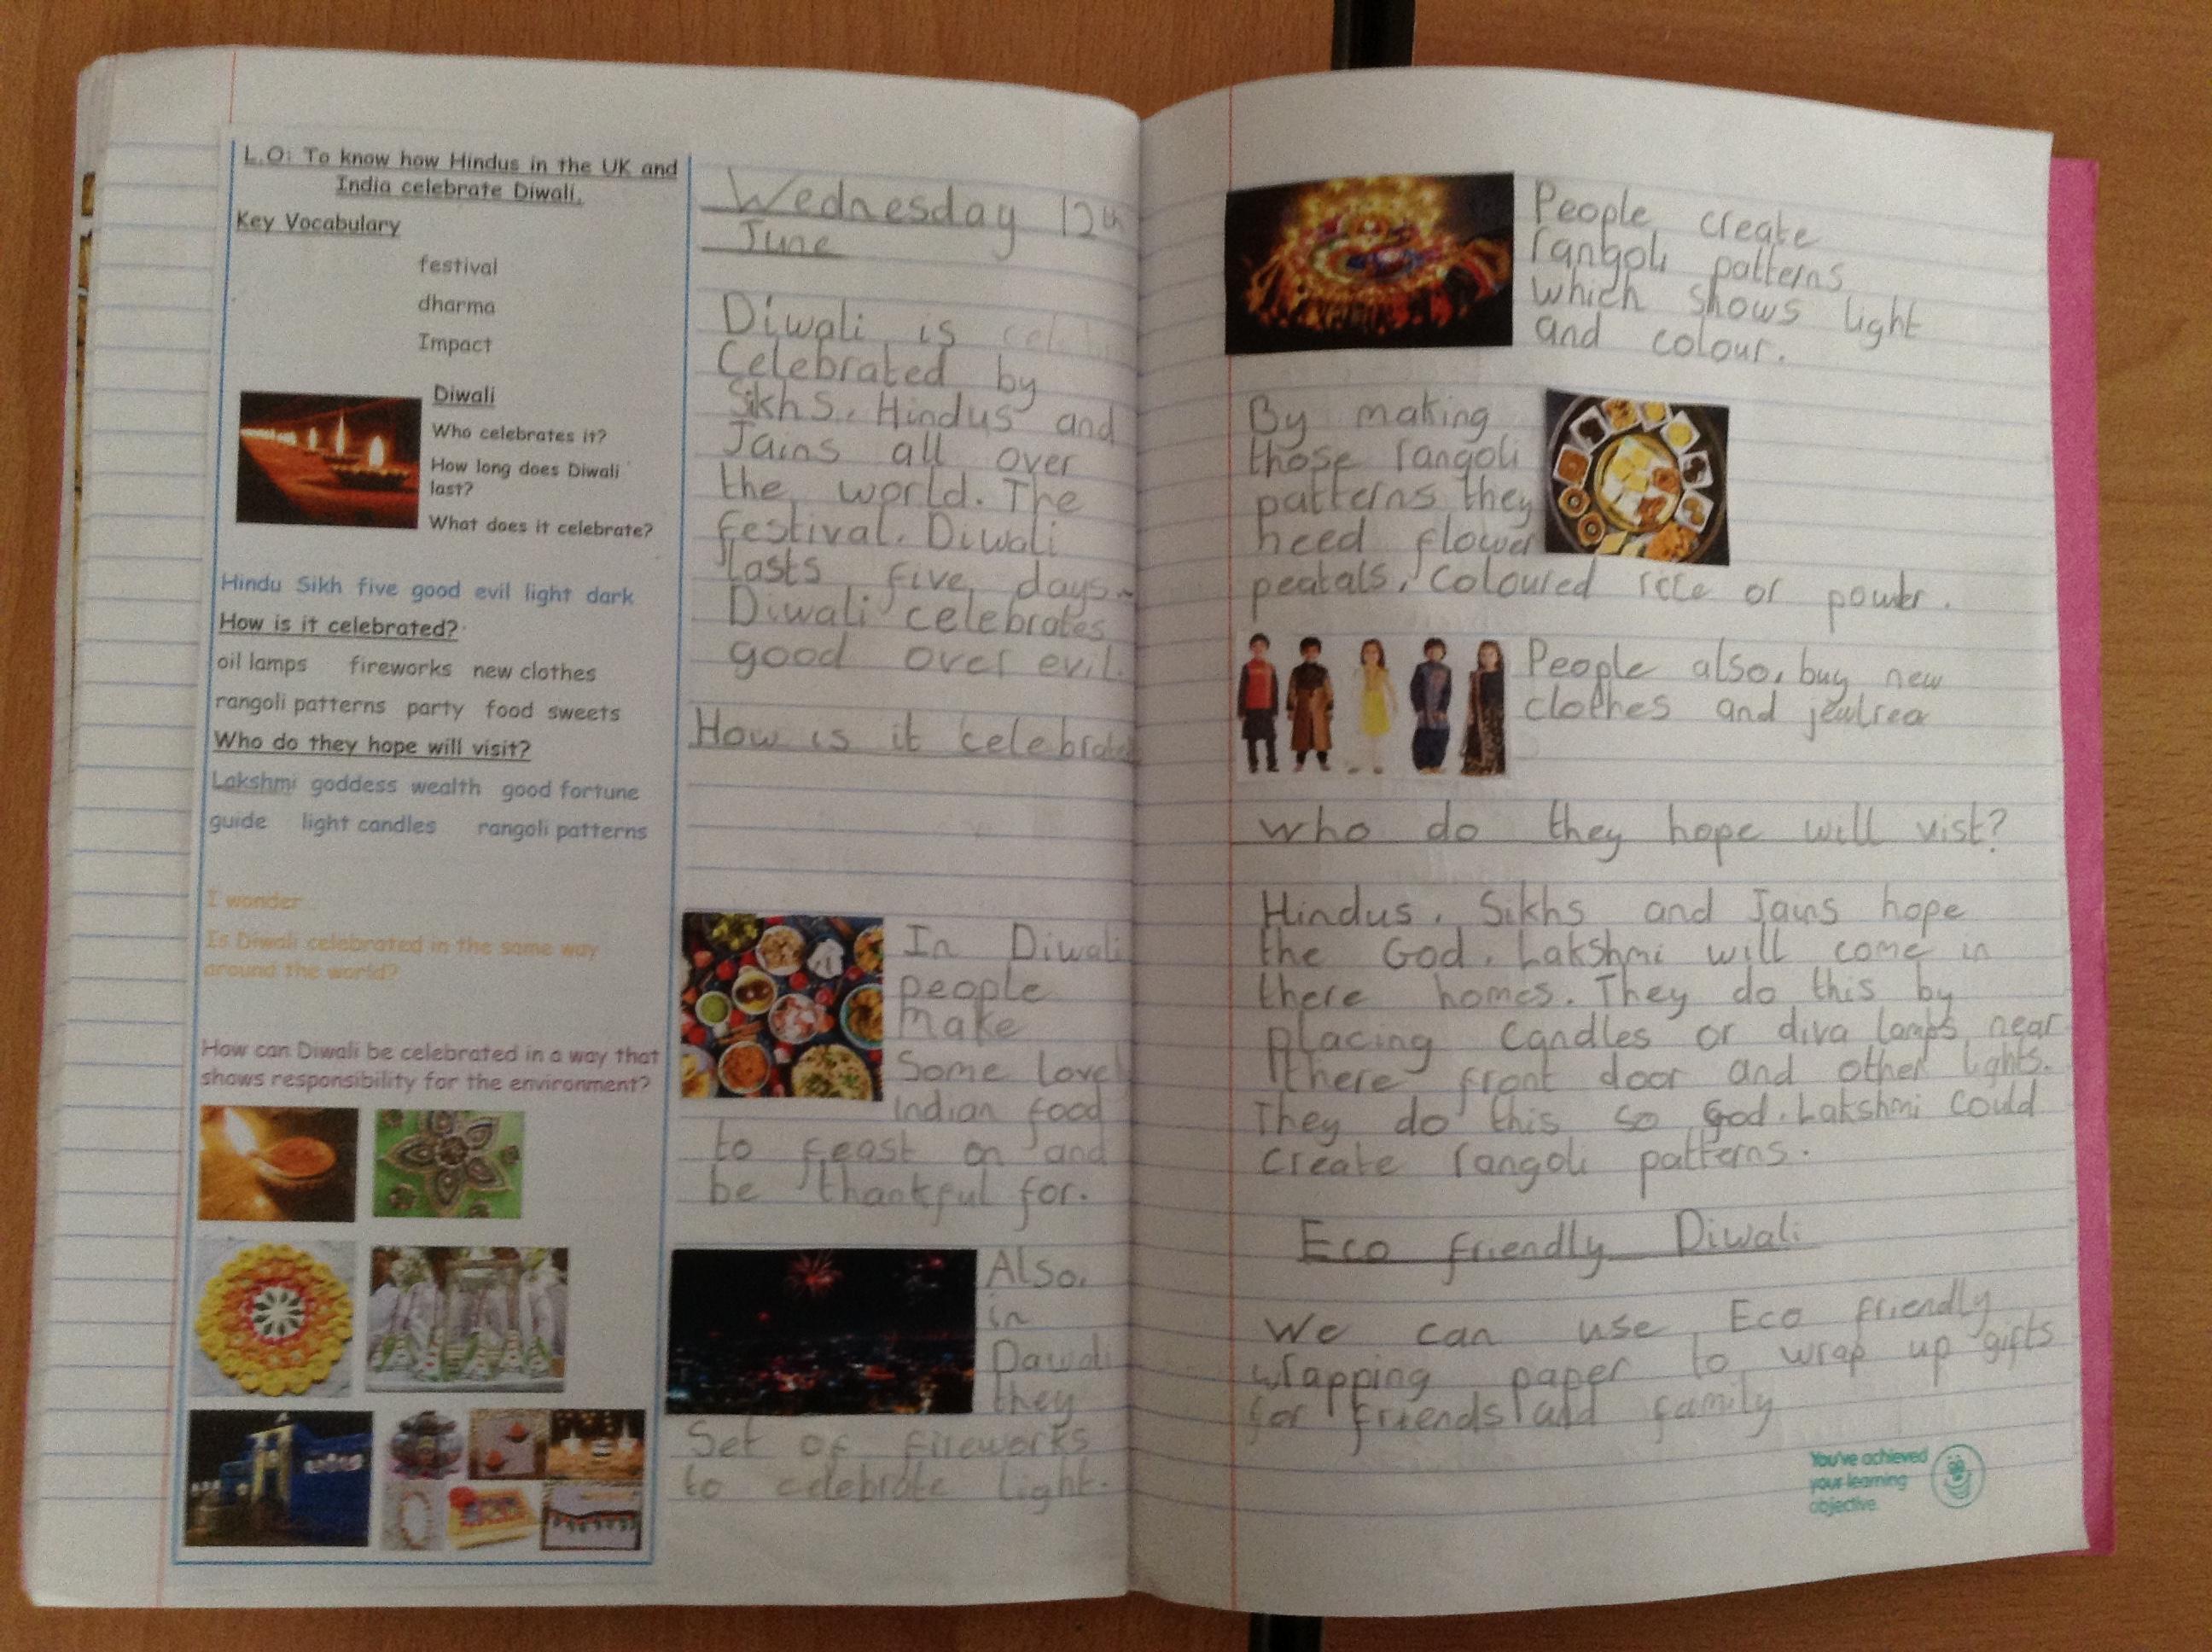 L.O: To know how Hindus in the UK and
India celebrate Diwali.
Key Vocabulary
festival
dharma
Impact
Diwali
Who celebrates it?
How long does Diwali
last?
What does it celebrate?
Hindu Sikh five good evil light dark
How is it celebrated?
oil lamps fireworks new clothes
rangoli patterns party food sweets
Who do they hope will visit?
Lakshmi goddess wealth good fortune
guide light candles rangoli patterns
I wonder
Is Diwali celebrated in the same way
around the world?
How can Diwali be celebrated in a way that
shows responsibility for the environment?
Wednesday 12th
June
Diwali is
Celebrated by
Sikhs, Hindus and
Jains all over
the world. The
festival, Diwali
lasts five days.
Diwali celebrates
good over evil.
How is it celebrated
In Diwali
people
make
Some lovel
Indian food
to feast on and
be thankful for.
Also,
in
they
Set of fireworks
to celebrate light.
People create
rangoli patterns
which shows light
and colour.
By making
those rangoli
patterns they
need flower
peatals, coloured rice or powder.
People also, buy new
clothes and
who do they hope will vist?
Hindus, Sikhs and Jains hope
the God, Lakshmi will come in
there homes. They do this by
placing candles or diva lamps near
there front door and other lights.
They do this so God, Lakshmi could
create rangoli patterns.
Eco friendly Diwali
We can use Eco friendly
wrapping paper to wrap up gifts
for friends and family
You've achieved
your learning
objective